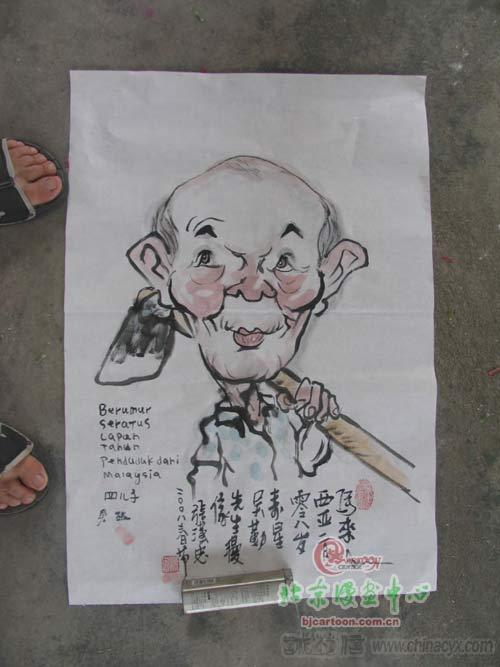 Berumur
seratus
Lapan
Tahun
Penduduk dari
Malaysia
四儿子
吴
马来
西亚一
零八岁
寿星
吴勤
先生
像
二〇〇八春节
CARTOON
CENTER
北京漫画中心
bjcartoon.com.cn
www.chinacyx.com